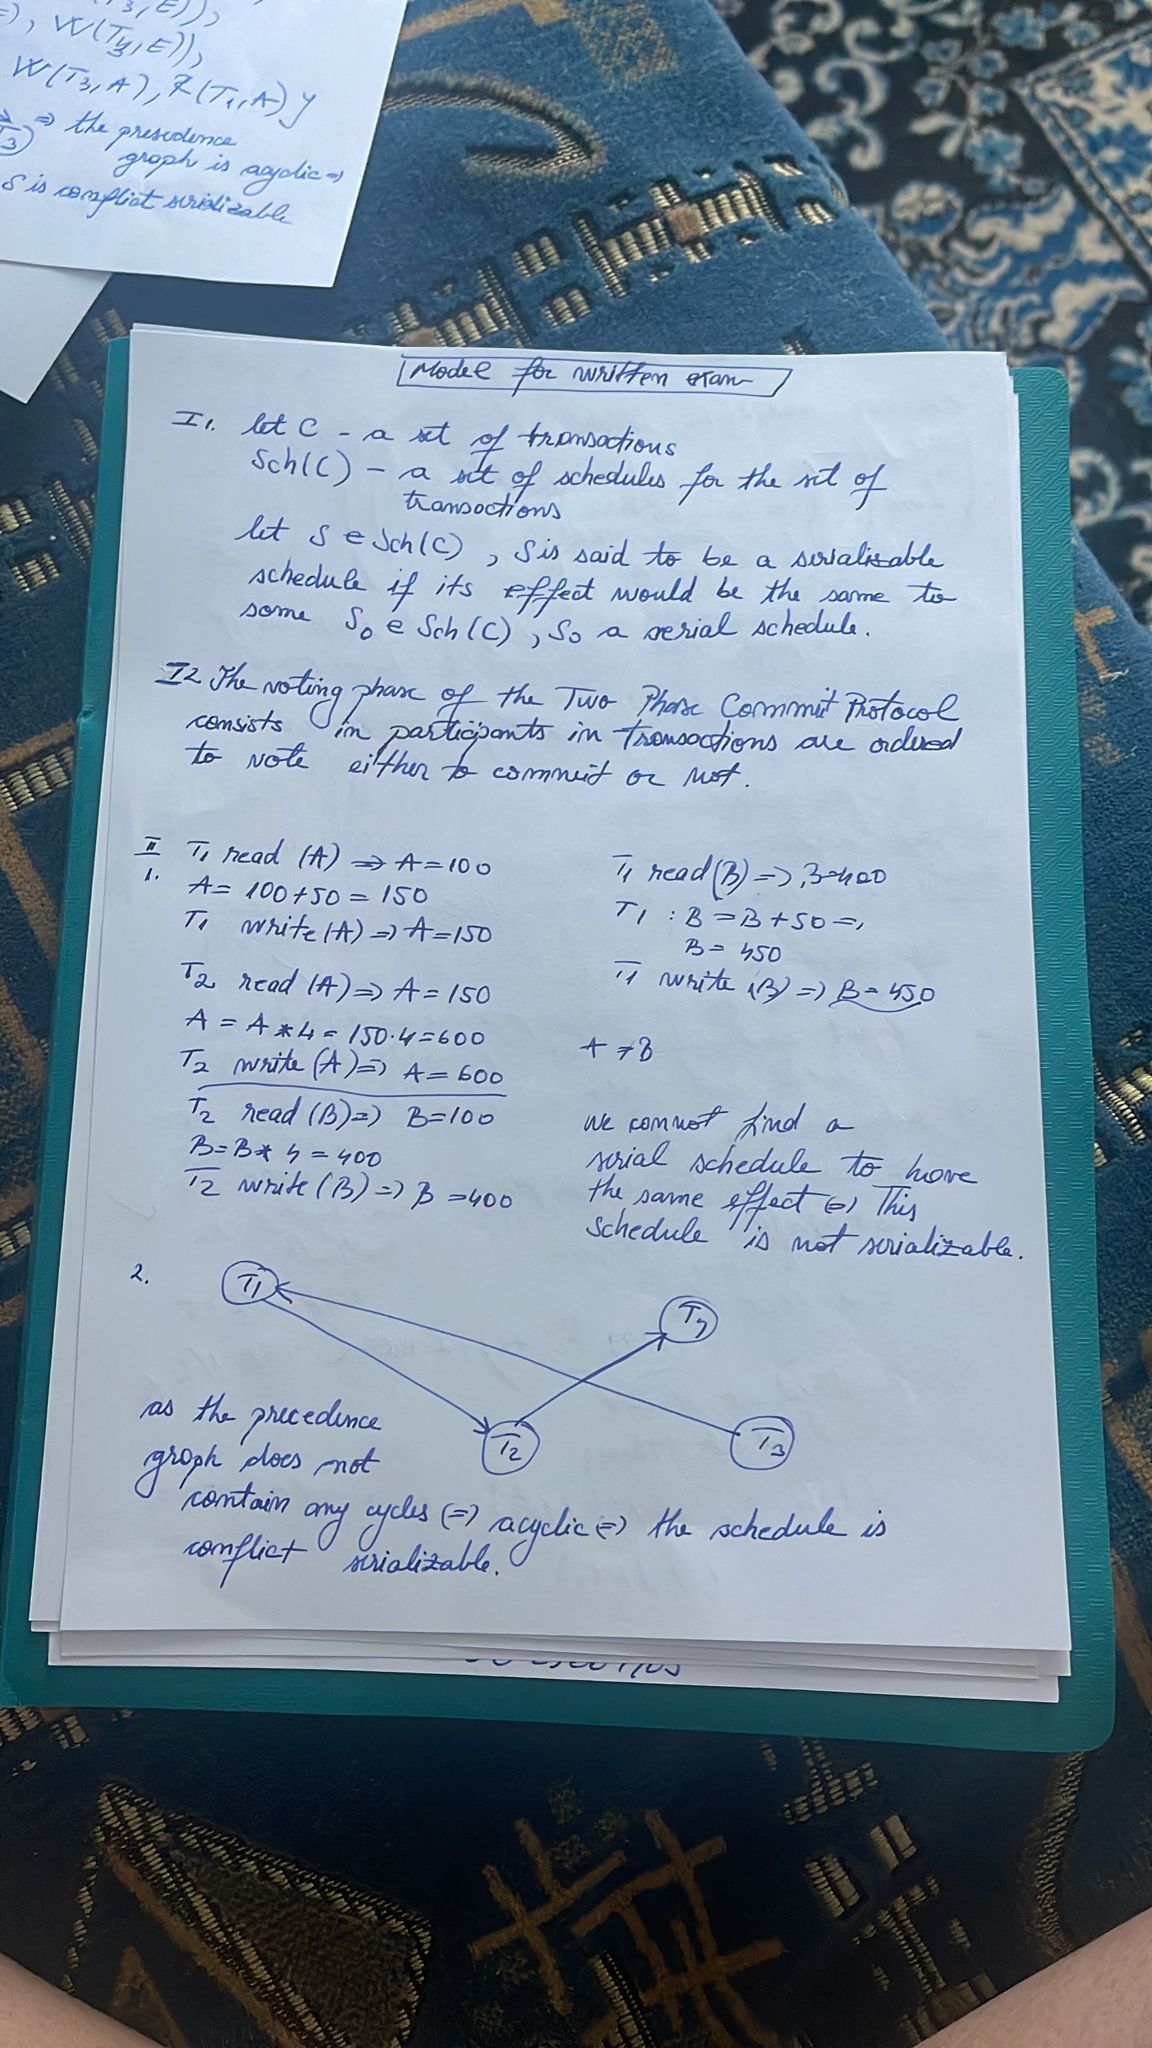 T3, E)),
), W(T4, E)),
W(T3, A), R(T1, A) y
T3 => the presedence
graph is acyclic =>
S is conflict serializable
Model for written exam
I1. let C - a set of transactions
Sch(C) - a set of schedules for the set of
transactions
let S e Sch(C), S is said to be a serializable
schedule if its effect would be the same to
some S0 e Sch(C), S0 a serial schedule.
I2 The voting phase of the Two Phase Commit Protocol
consists in participants in transactions are ordered
to vote either to commit or not.
II
1. T1 read (A) => A=100
A= 100+50 = 150
T1 write(A) => A=150
T2 read (A) => A=150
A = A*4 = 150.4=600
T2 write (A) => A=600
T2 read (B) => B=100
B=B*4=400
T2 write (B) => B=400
T1 read(B) => B=400
T1 : B=B+50 =>
B=450
T1 write (B) => B=450
A ≠ B
we cannot find a
serial schedule to have
the same effect => This
schedule is not serializable.
2. T1
T4
T2
T3
as the precedence
graph does not
contain any cycles (=) acyclic => the schedule is
conflict serializable.